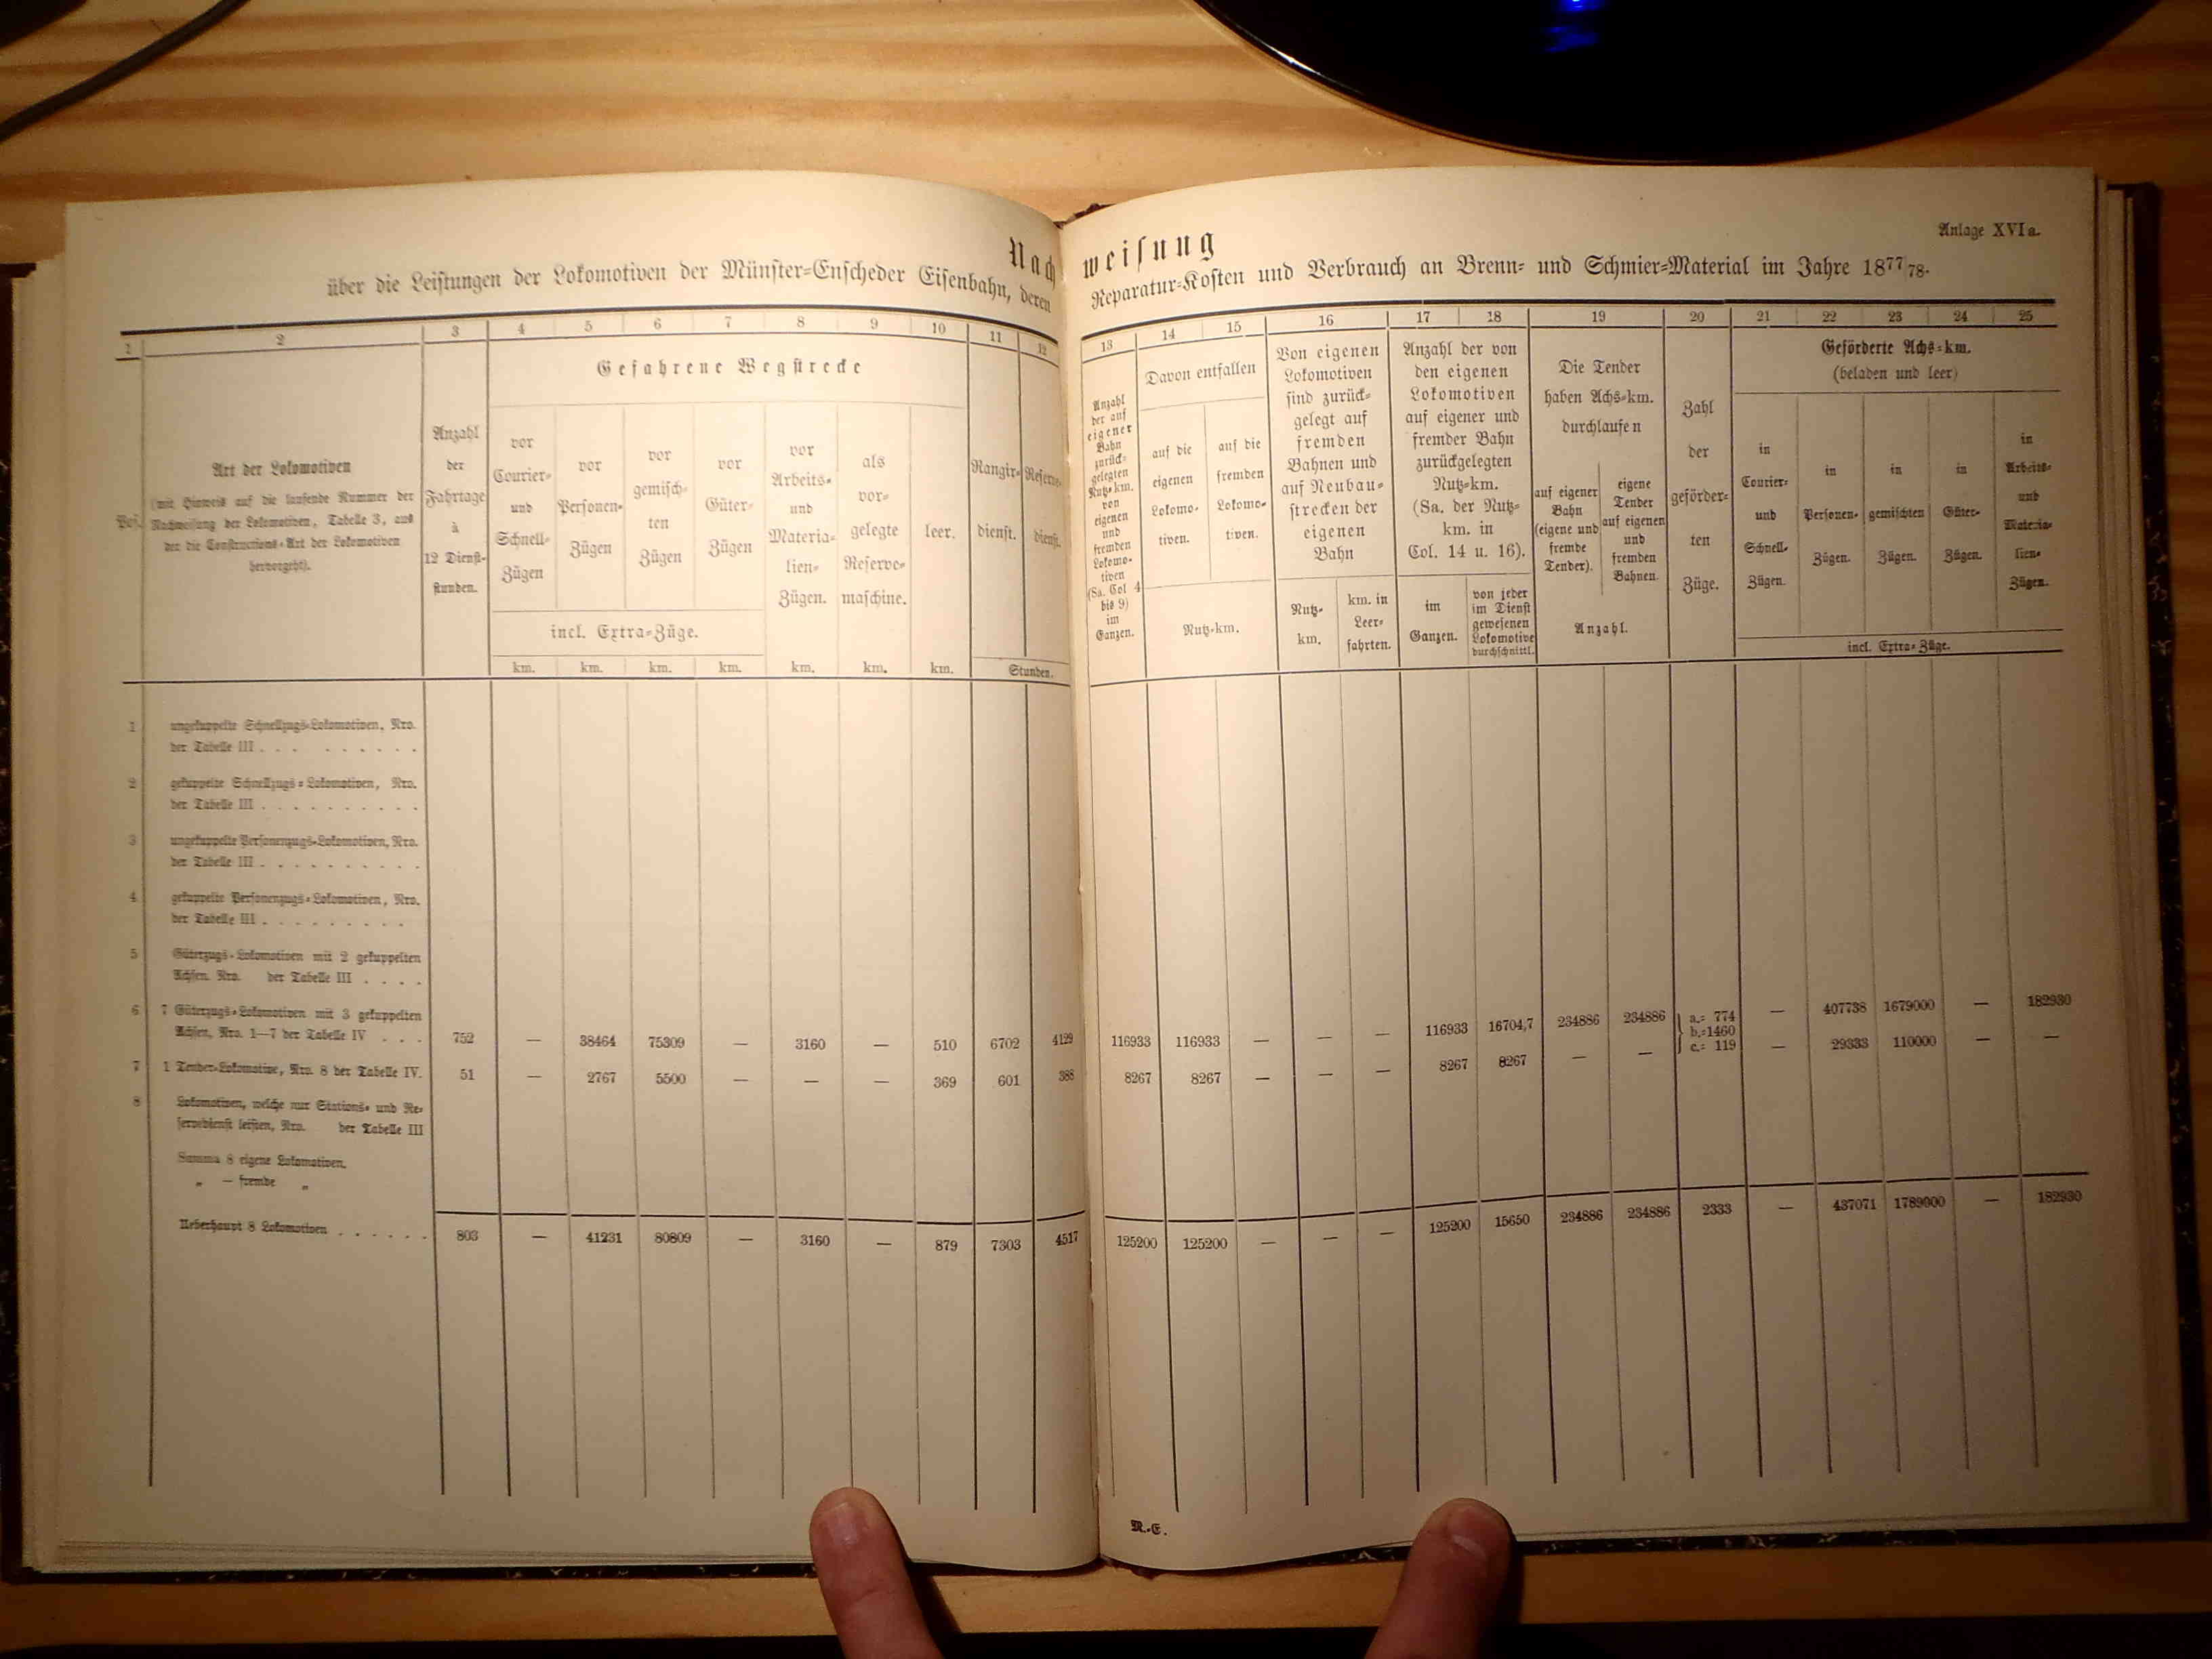 Nachweisung
Anlage XVI a.
über die Leistungen der Lokomotiven der Münster-Enscheder Eisenbahn, deren Reparatur-Kosten und Verbrauch an Brenn- und Schmier-Material im Jahre 1877/78.
1 2 3 4 5 6 7 8 9 10 11 12
Pos.
Art der Lokomotiven
(mit Hinweis auf die laufende Nummer der
Nachweisung der Lokomotiven, Tabelle 3, aus
der die Constructions-Art der Lokomotiven
hervorgeht).
Anzahl
der
Fahrtage
à
12 Dienst-
stunden.
Gefahrene Wegstrecke
vor
Courier-
und
Schnell-
Zügen
vor
Personen-
Zügen
vor
gemisch-
ten
Zügen
vor
Güter-
Zügen
incl. Extra-Züge.
vor
Arbeits-
und
Materia-
lien-
Zügen.
als
vor-
gelegte
Reserve-
maschine.
leer.
Rangir-
dienst.
Reserve-
dienst.
km. km. km. km. km. km. km. Stunden.
1 ungekuppelte Schnellzugs-Lokomotiven, Nro.
der Tabelle III . . . . . . . . .
2 gekuppelte Schnellzugs-Lokomotiven, Nro.
der Tabelle III . . . . . . . . . .
3 ungekuppelte Personenzugs-Lokomotiven, Nro.
der Tabelle III . . . . . . . . . .
4 gekuppelte Personenzugs-Lokomotiven, Nro.
der Tabelle III . . . . . . . . .
5 Güterzugs-Lokomotiven mit 2 gekuppelten
Achsen. Nro. der Tabelle III . . . .
6 7 Güterzugs-Lokomotiven mit 3 gekuppelten
Achsen, Nro. 1—7 der Tabelle IV . . . 752 — 38464 75309 — 3160 — 510 6702 4129
7 1 Tender-Lokomotive, Nro. 8 der Tabelle IV. 51 — 2767 5500 — — — 369 601 388
8 Lokomotiven, welche nur Stations- und Re-
servedienst leisten, Nro. der Tabelle III
Summa 8 eigene Lokomotiven.
„ — fremde „
Ueberhaupt 8 Lokomotiven . . . . . . 803 — 41231 80809 — 3160 — 879 7303 4517
13 14 15 16 17 18 19 20 21 22 23 24 25
Anzahl
der auf
eigener
Bahn
zurück-
gelegten
Nutz-km.
von
eigenen
und
fremden
Lokomo-
tiven
(Sa. Col 4
bis 9)
im
Ganzen.
Davon entfallen
auf die
eigenen
Lokomo-
tiven.
auf die
fremden
Lokomo-
tiven.
Nutz-km.
Von eigenen
Lokomotiven
sind zurück-
gelegt auf
fremden
Bahnen und
auf Neubau-
strecken der
eigenen
Bahn
Nutz-
km.
km. in
Leer-
fahrten.
Anzahl der von
den eigenen
Lokomotiven
auf eigener und
fremder Bahn
zurückgelegten
Nutz-km.
(Sa. der Nutz-
km. in
Col. 14 u. 16).
im
Ganzen.
von jeder
im Dienst
gewesenen
Lokomotive
durchschnittl.
Die Tender
haben Achs-km.
durchlaufen
auf eigener
Bahn
(eigene und
fremde
Tender).
eigene
Tender
auf eigenen
und
fremden
Bahnen.
Anzahl.
Zahl
der
geförder-
ten
Züge.
Geförderte Achs-km.
(beladen und leer)
in
Courier-
und
Schnell-
Zügen.
in
Personen-
Zügen.
in
gemischten
Zügen.
in
Güter-
Zügen.
in
Arbeits-
und
Materia-
lien-
Zügen.
incl. Extra-Züge.
116933 116933 — — — 116933 16704,7 234886 234886 a.= 774 — 407738 1679000 — 182930
b.=1460
8267 8267 — — — 8267 8267 — — c.= 119 — 29333 110000 — —
125200 125200 — — — 125200 15650 234886 234886 2333 — 437071 1789000 — 182930
M.-E.